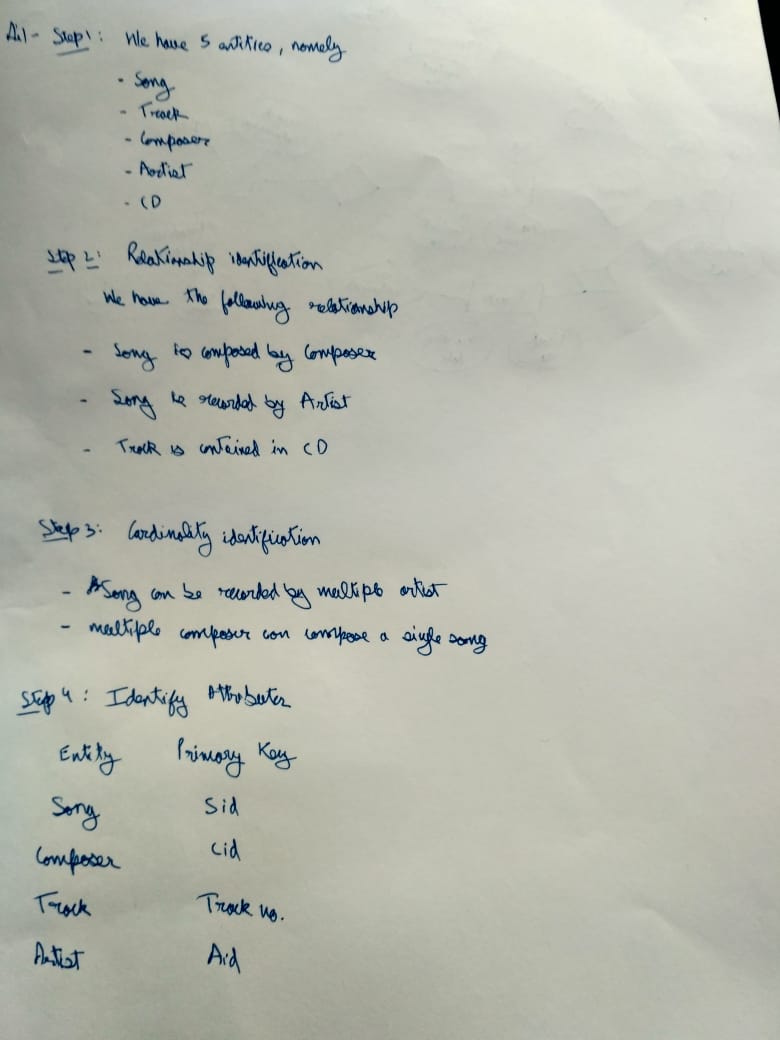 A.1- Step 1: We have 5 entities, namely
- Song
- Track
- Composer
- Artist
- CD
Step 2: Relationship identification
We have the following relationship
- Song is composed by Composer
- Song be recorded by Artist
- Track is contained in CD
Step 3: Cardinality identification
- A Song can be recorded by multiple artist
- multiple composer can compose a single song
Step 4: Identify Attributes
Entity Primary Key
Song Sid
Composer Cid
Track Track no.
Artist Aid